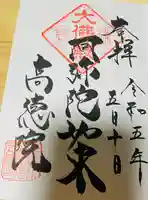 奉拝
令和五年
五月十日
大佛
阿弥陀如来
高徳院